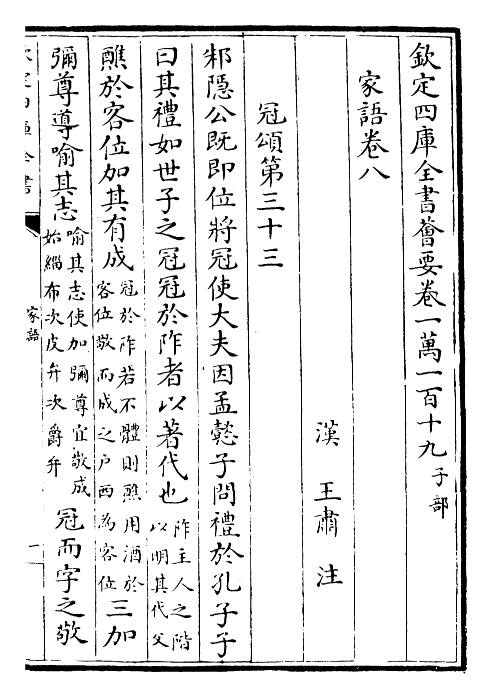 欽定四庫全書薈要卷一萬一百十九子部
家語卷八
漢王肅注
冠頌第三十三
邾隱公既即位將冠使大夫因孟懿子問禮於孔子子
曰其禮如世子之冠冠於阼者以著代也阼主人之階以明其代父
醮於客位加其有成冠於阼若不醴則醮用酒於客位敬而成之户西為客位三加
彌尊導喻其志喻其志使加彌尊宜敬成始緇布次皮弁次爵弁冠而字之敬
家語
一